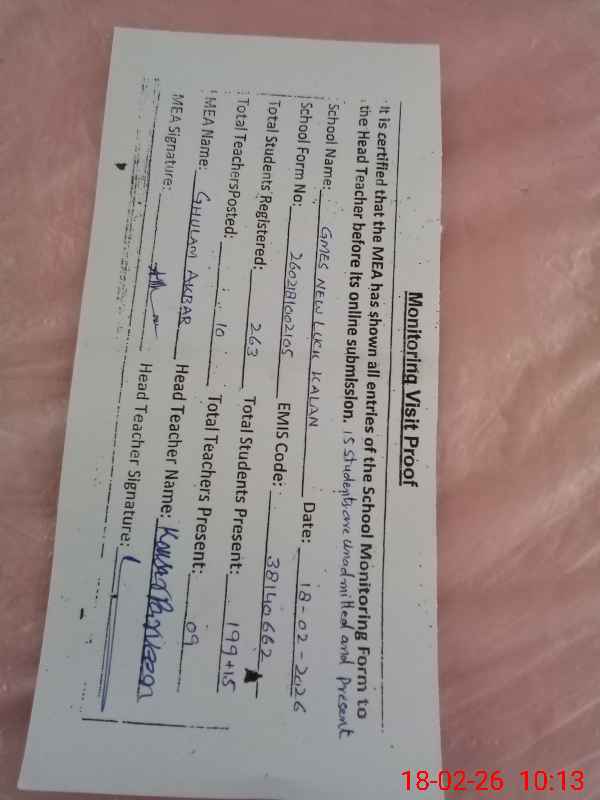 Monitoring Visit Proof
It is certified that the MEA has shown all entries of the School Monitoring Form to
the Head Teacher before its online submission. 15 students are unadmitted and present
School Name: GMES NEW LUKU KALAN Date: 18-02-2026
School Form No: 2602181002105 EMIS Code: 38140662
Total Students Registered: 263 Total Students Present: 199+15
Total Teachers Posted: 10 Total Teachers Present: 09
MEA Name: GHULAM AKBAR Head Teacher Name: Parveen
MEA Signature: Head Teacher Signature:
18-02-26 10:13